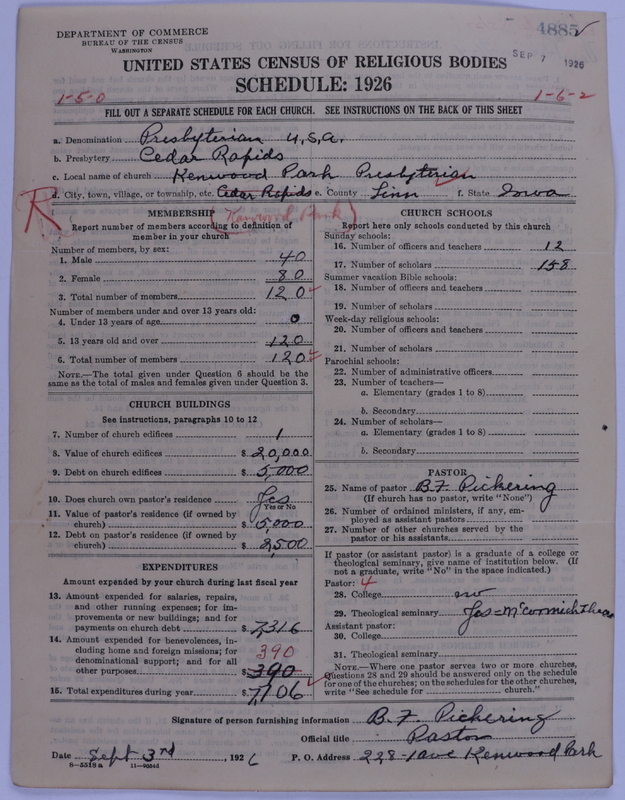 DEPARTMENT OF COMMERCE
BUREAU OF THE CENSUS
WASHINGTON
4885
SEP 7 1926
UNITED STATES CENSUS OF RELIGIOUS BODIES
SCHEDULE: 1926
1-5-0
1-6-2
FILL OUT A SEPARATE SCHEDULE FOR EACH CHURCH. SEE INSTRUCTIONS ON THE BACK OF THIS SHEET
a. Denomination Presbyterian U.S.A.
b. Presbytery Cedar Rapids
c. Local name of church Kenwood Park Presbyterian
d. City, town, village, or township, etc. Cedar Rapids e. County Linn f. State Iowa
R
(Kenwood Park)
MEMBERSHIP
Report number of members according to definition of
member in your church
Number of members, by sex:
1. Male 40
2. Female 80
3. Total number of members 120
Number of members under and over 13 years old:
4. Under 13 years of age 0
5. 13 years old and over 120
6. Total number of members 120
NOTE.—The total given under Question 6 should be
same as the total of males and females given under Question 3.
CHURCH BUILDINGS
See instructions, paragraphs 10 to 12
7. Number of church edifices 1
8. Value of church edifices $20,000
9. Debt on church edifices $5,000
10. Does church own pastor's residence Yes
Yes or No
11. Value of pastor's residence (if owned by
church) $5,000
12. Debt on pastor's residence (if owned by
church) $2,500
EXPENDITURES
Amount expended by your church during last fiscal year
13. Amount expended for salaries, repairs,
and other running expenses; for im-
provements or new buildings; and for
payments on church debt $7,316
14. Amount expended for benevolences, in-
cluding home and foreign missions; for
denominational support; and for all
other purposes $390
390
15. Total expenditures during year $7,706
CHURCH SCHOOLS
Report here only schools conducted by this church
Sunday schools:
16. Number of officers and teachers 12
17. Number of scholars 158
Summer vacation Bible schools:
18. Number of officers and teachers
19. Number of scholars
Week-day religious schools:
20. Number of officers and teachers
21. Number of scholars
Parochial schools:
22. Number of administrative officers
23. Number of teachers—
a. Elementary (grades 1 to 8)
b. Secondary
24. Number of scholars—
a. Elementary (grades 1 to 8)
b. Secondary
PASTOR
25. Name of pastor B.F. Pickering
(If church has no pastor, write "None")
26. Number of ordained ministers, if any, em-
ployed as assistant pastors
27. Number of other churches served by the
pastor or his assistants
If pastor (or assistant pastor) is a graduate of a college or
theological seminary, give name of institution below. (If
not a graduate, write "No" in the space indicated.)
Pastor: 4
28. College no
29. Theological seminary Yes = McCormick
Assistant pastor:
30. College
31. Theological seminary
NOTE.—Where one pastor serves two or more churches,
Questions 28 and 29 should be answered only on the schedule
for one of the churches; on the schedules for the other churches,
write "See schedule for church."
Signature of person furnishing information B. F. Pickering
Official title Pastor
Date Sept 3rd, 1926 P. O. Address 228-1 ave Kenwood Park
8-5518 a